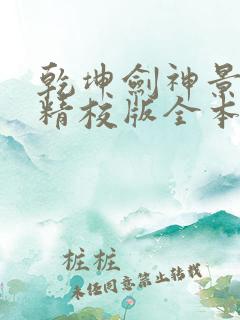 乾坤劍神景
精校版全本
桩桩
未经同意禁止转载